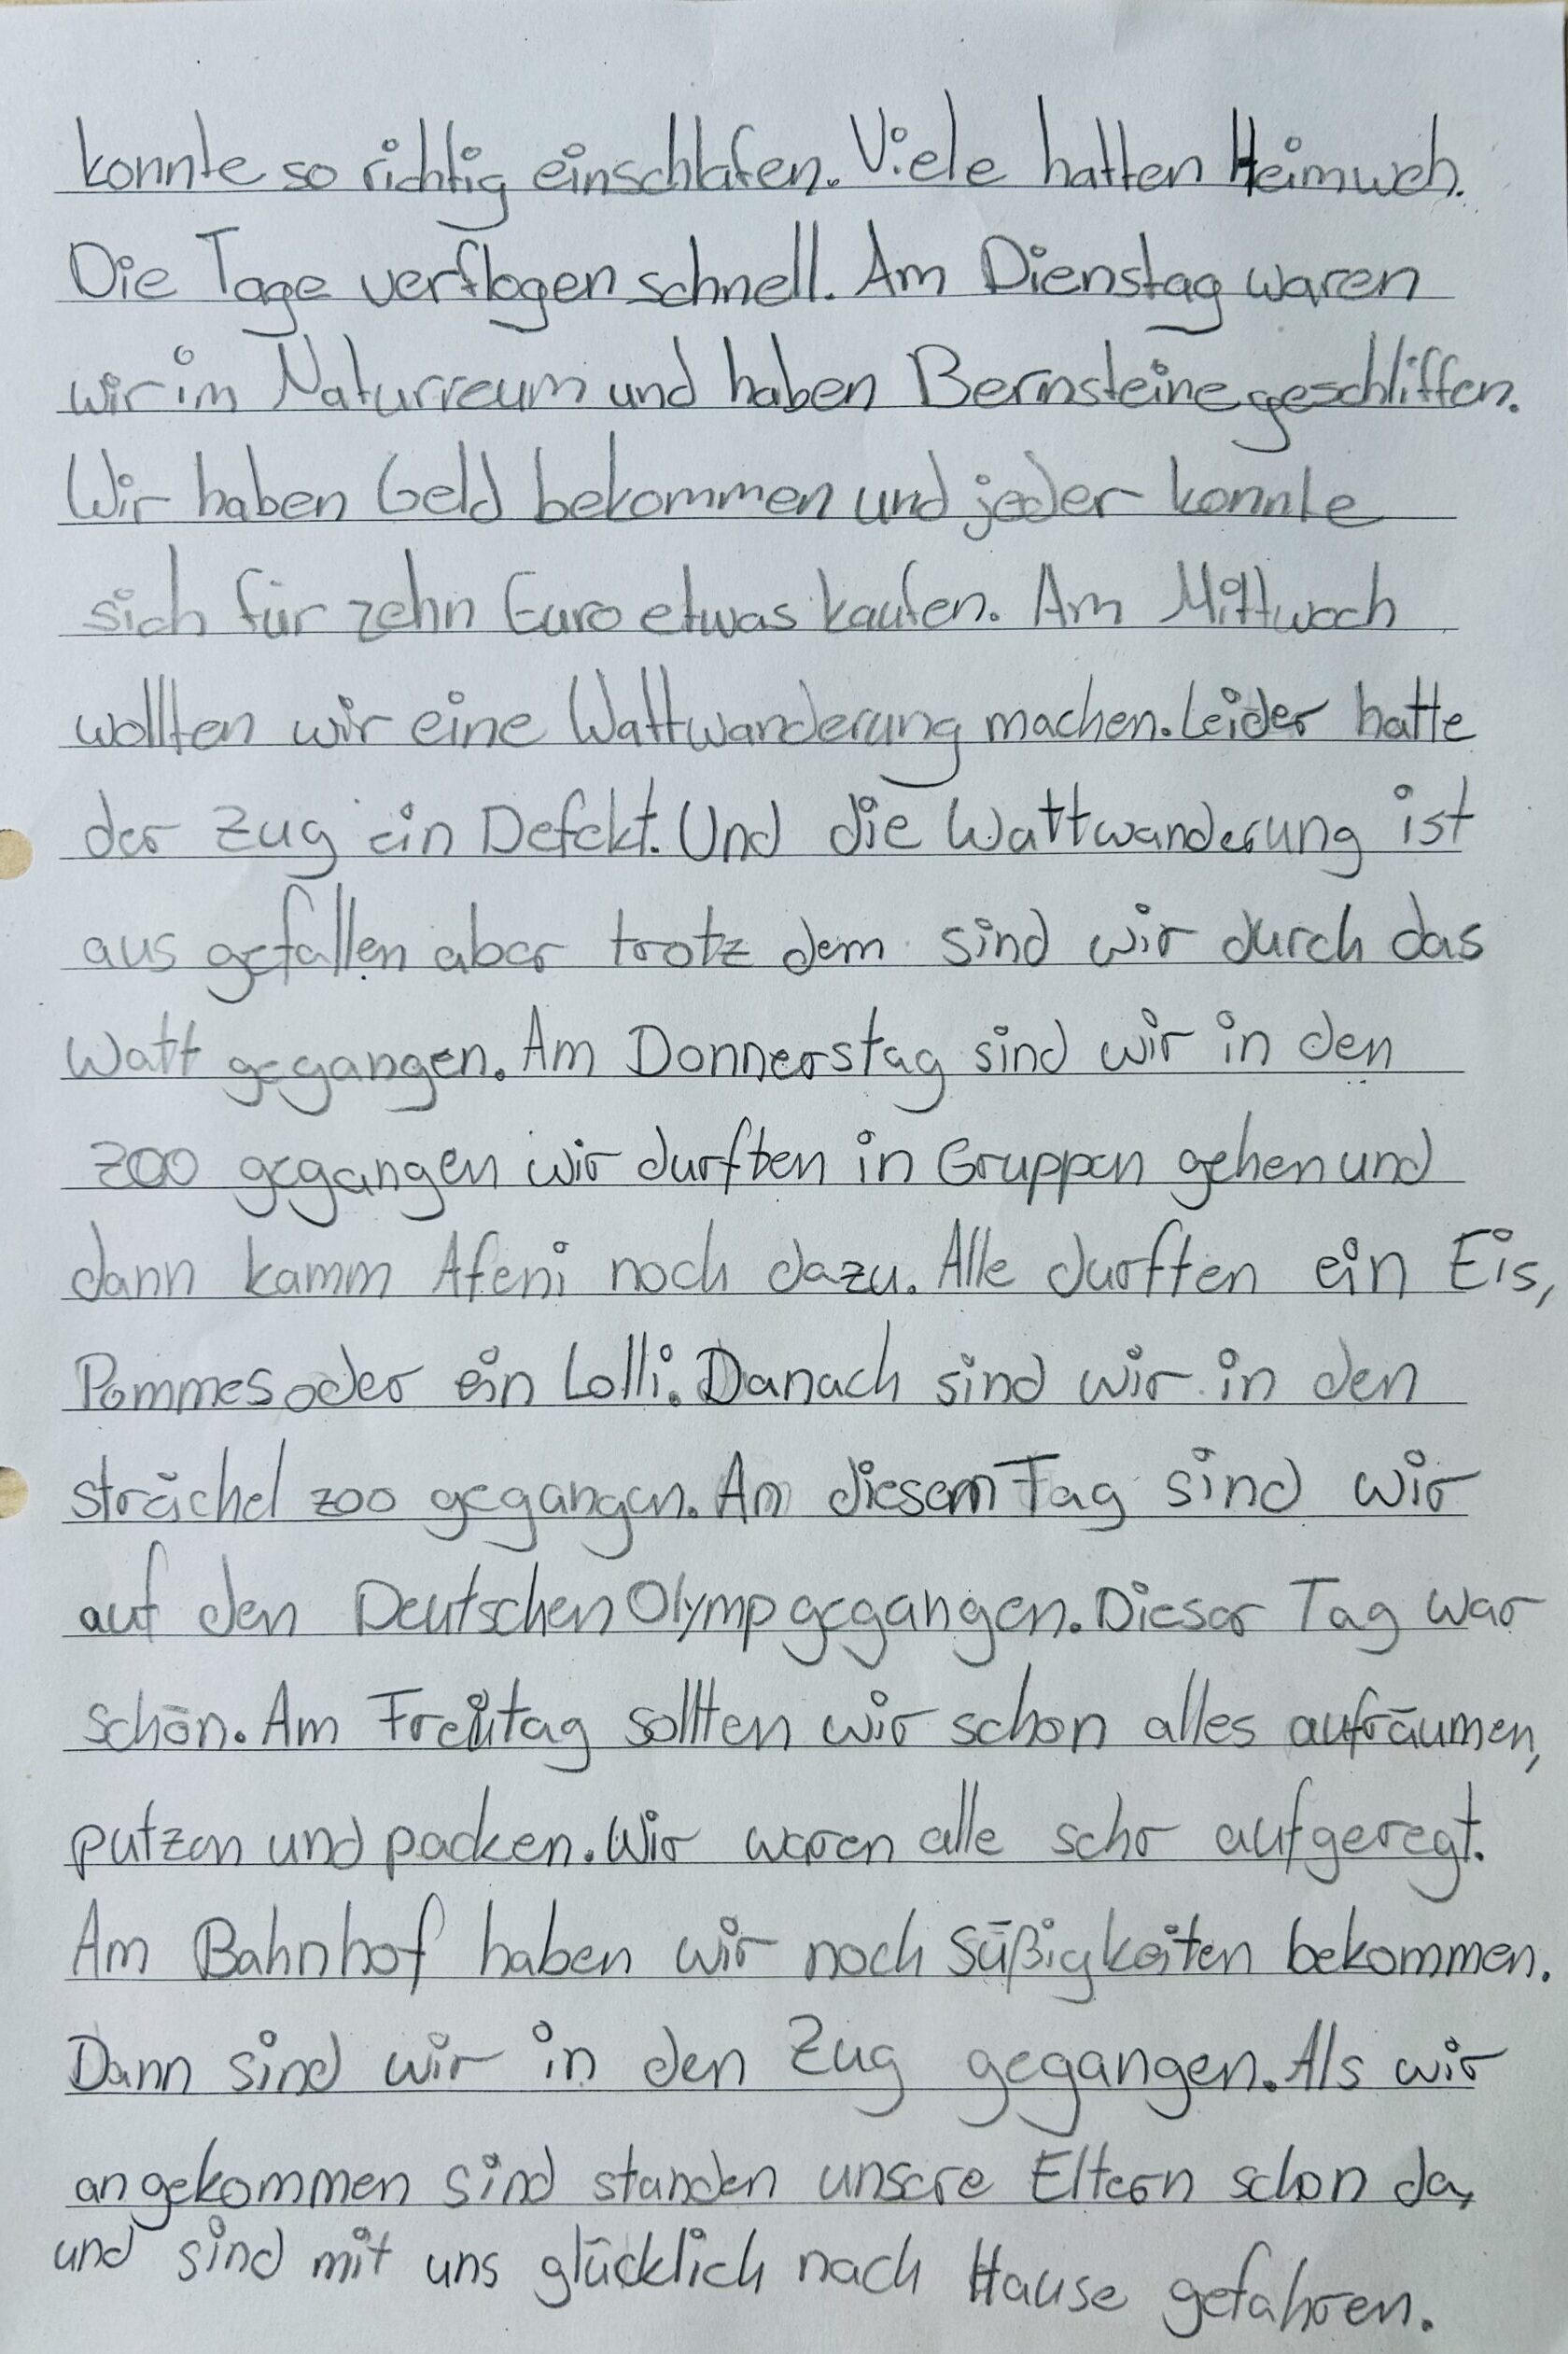 konnte so richtig einschlafen. Viele hatten Heimweh.
Die Tage verflogen schnell. Am Dienstag waren
wir im Naturreum und haben Bernsteine geschliffen.
Wir haben Geld bekommen und jeder konnte
sich für zehn Euro etwas kaufen. Am Mittwoch
wollten wir eine Wattwanderung machen. Leider hatte
der Zug ein Defekt. Und die Wattwanderung ist
aus gefallen aber trotz dem sind wir durch das
Watt gegangen. Am Donnerstag sind wir in den
zoo gegangen wir durften in Gruppen gehen und
dann kamm Afeni noch dazu. Alle durften ein Eis,
Pommes oder ein Lolli. Danach sind wir in den
sträichel zoo gegangen. An diesem Tag sind wir
auf den Deutschen Olymp gegangen. Dieser Tag war
schön. Am Freitag sollten wir schon alles aufräumen,
putzen und packen. Wir waren alle sehr aufgeregt.
Am Bahnhof haben wir noch Süßigkeiten bekommen.
Dann sind wir in den Zug gegangen. Als wir
angekommen sind standen unsere Eltern schon da,
und sind mit uns glücklich nach Hause gefahren.